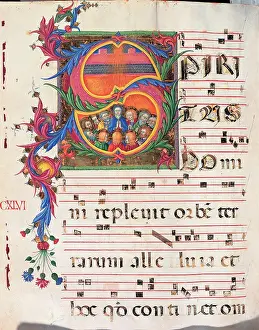 SPIRI
TUS
DOMI
CXLVI
ni replevit orbē ter
rarum alleluia et
hoc qđ continet om